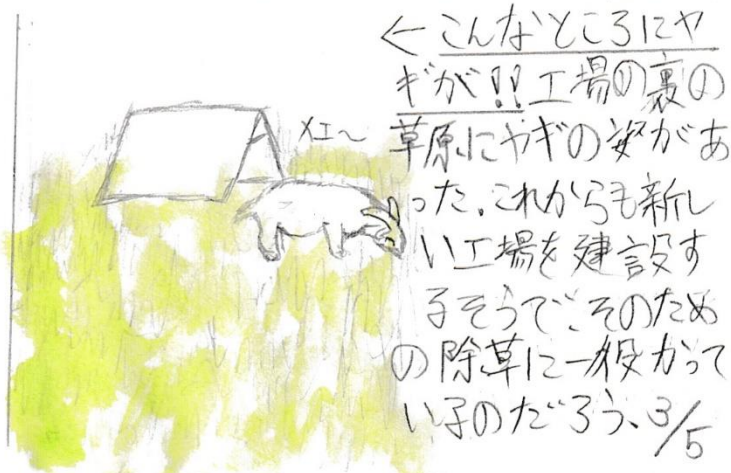 メエ～
←こんなところにヤ
ギが!!工場の裏の
草原にヤギの姿があ
った。これからも新し
い工場を建設す
るそうで、そのため
の除草に一役かって
いるのだろう、3/5